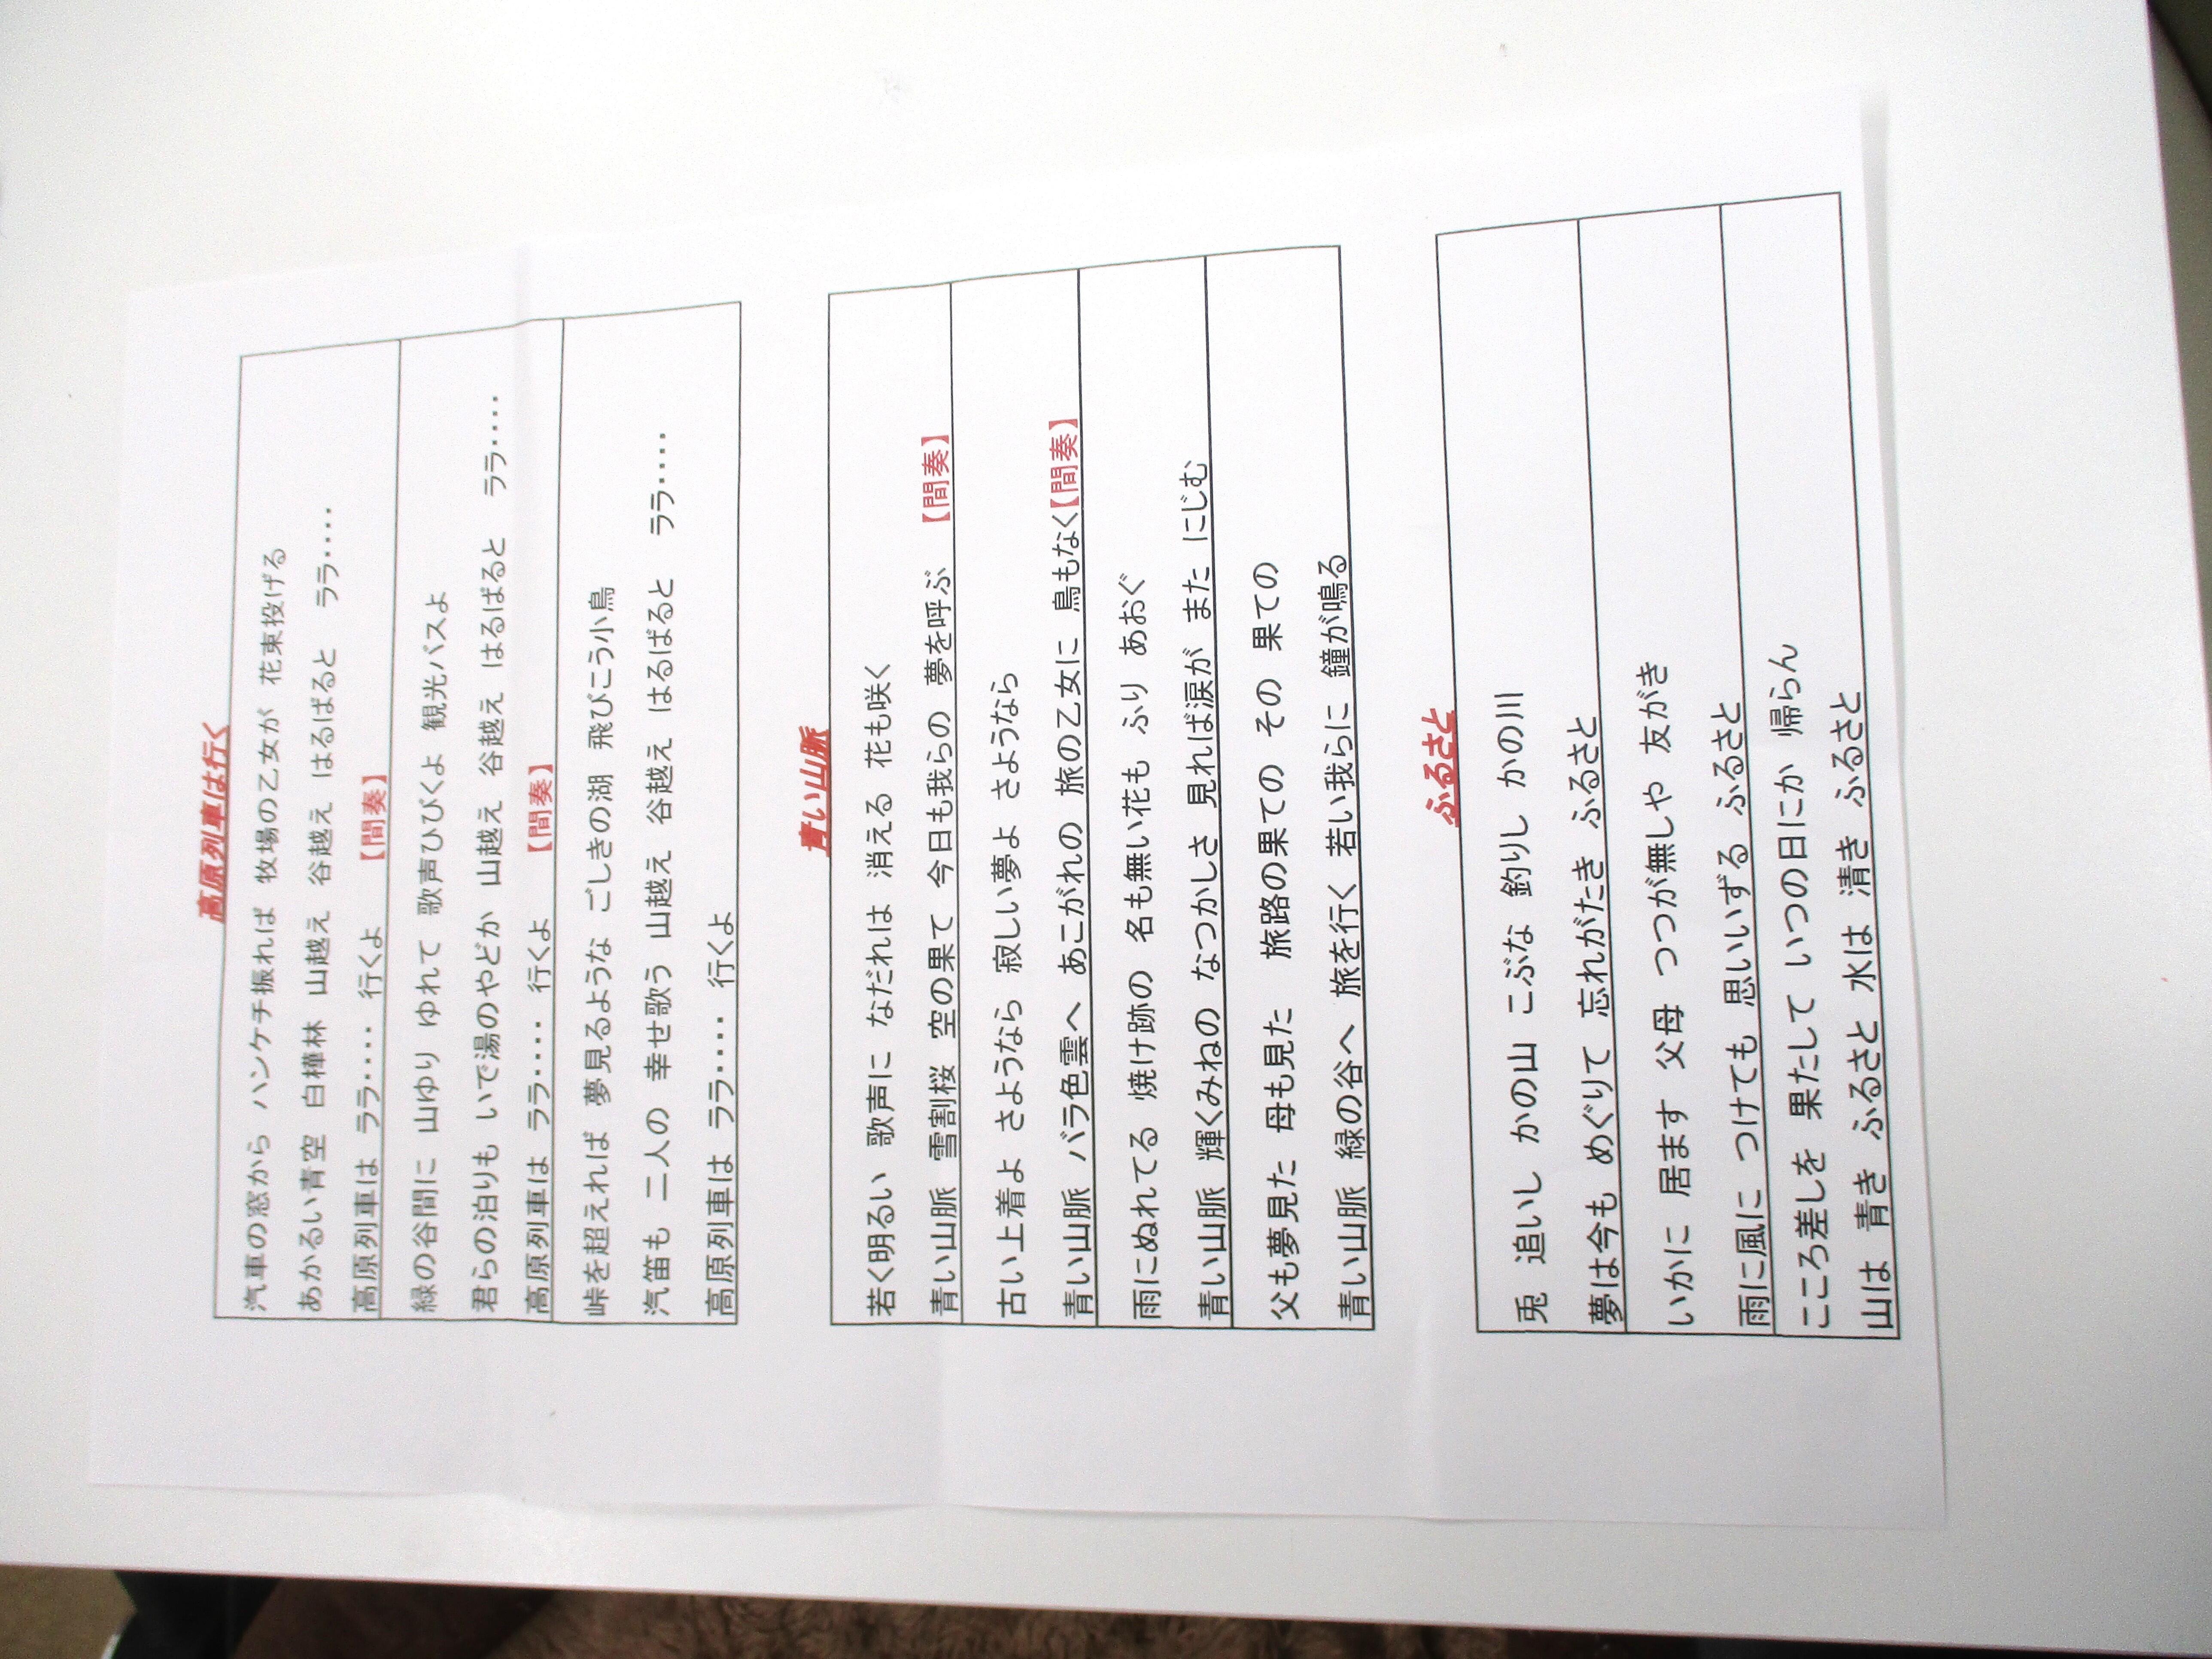 高原列車は行く
汽車の窓から ハンケチ振れば 牧場の乙女が 花束投げる
あかるい青空 白樺林 山越え 谷越え はるばると ララ････
高原列車は ララ････ 行くよ 【間奏】
緑の谷間に 山ゆり ゆれて 歌声ひびくよ 観光バスよ
君らの泊りも いで湯のやどか 山越え 谷越え はるばると ララ････
高原列車は ララ････ 行くよ 【間奏】
峠を超えれば 夢見るような ごしきの湖 飛びこう小鳥
汽笛も 二人の 幸せ歌う 山越え 谷越え はるばると ララ････
高原列車は ララ････ 行くよ
青い山脈
若く明るい 歌声に なだれは 消える 花も咲く
青い山脈 雪割桜 空の果て 今日も我らの 夢を呼ぶ 【間奏】
古い上着よ さようなら 寂しい夢よ さようなら
青い山脈 バラ色雲へ あこがれの 旅の乙女に 鳥もなく【間奏】
雨にぬれてる 焼け跡の 名も無い花も ふり あおぐ
青い山脈 輝くみねの なつかしさ 見れば涙が また にじむ
父も夢見た 母も見た 旅路の果ての その 果ての
青い山脈 緑の谷へ 旅を行く 若い我らに 鐘が鳴る
ふるさと
兎 追いし かの山 こぶな 釣りし かの川
夢は今も めぐりて 忘れがたき ふるさと
いかに 居ます 父母 つつが無しや 友がき
雨に風に つけても 思いいずる ふるさと
こころ差しを 果たして いつの日にか 帰らん
山は 青き ふるさと 水は 清き ふるさと